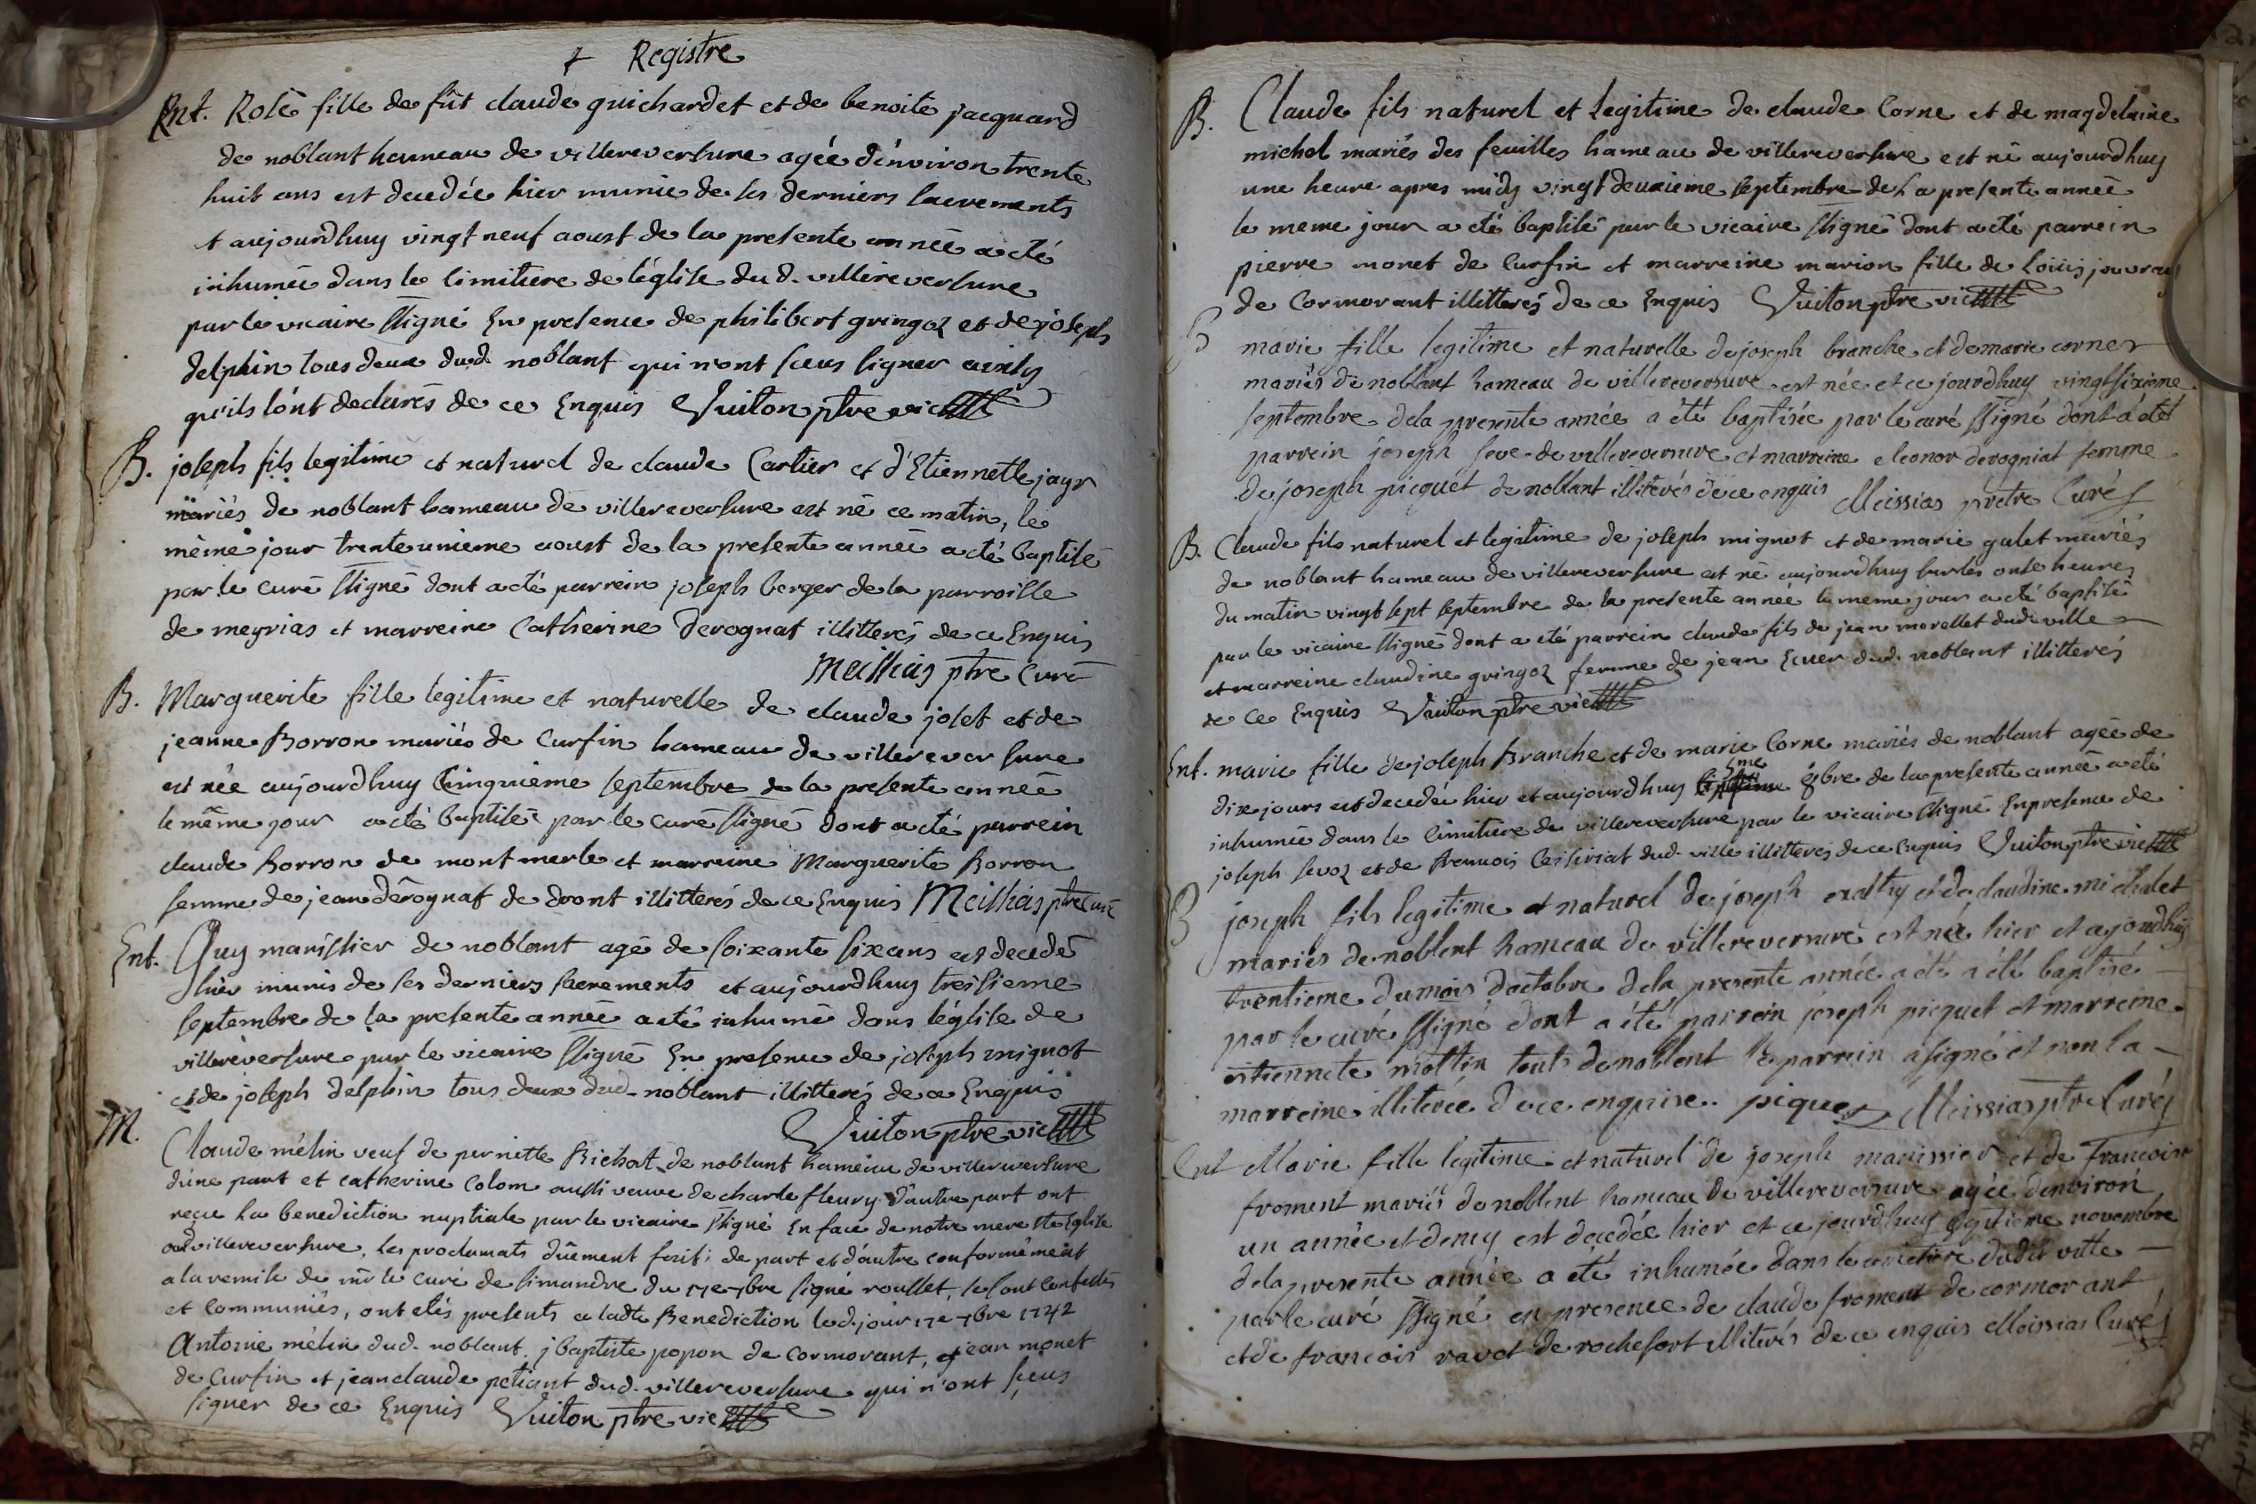 + Registre
Ent. Rose fille de fût claude guichardet et de benoite jacquard
de noblant hameau de villereversure agée d'environ trente
huit ans est decedée hier munie de ses derniers sacrements
et aujourdhuy vingt neuf aoust de la presente année a eté
inhumée dans le cimitiere de l'église dud. villereversure
par le vicaire ssigné En presence de philibert gringoz et de joseph
delphin tous deux dud. noblant qui n'ont sceus signer ainsy
qu'ils l'ont declarés de ce Enquis Vuiton ptre vic
B. joseph fils legitime et naturel de claude Cartier et d'Etiennette jayr
mariés de noblant hameau de villereversure est né ce matin, le
même jour trente unieme aoust de la presente année a eté baptisé
par le curé ssigné dont a eté parrein joseph berger de la parroisse
de meyrias et marreine Catherine Derognat illitterés de ce Enquis
Meissias ptre Curé
B. Marguerite fille legitime et naturelle de claude joset et de
jeanne Borron mariés de Curfin hameau de villereversure
est née aujourdhuy Cinquieme septembre de la presente année
le même jour a eté baptisée par le curé ssigné dont a eté parrein
claude Borron de mont merle et marreine Marguerite Borron
femme de jean derognat de dront illitterés de ce Enquis Meissias ptre Curé
Ent. Guy manissier de noblant agé de soixante six ans est decedé
hier munis de ses derniers sacrements et aujourdhuy treisieme
septembre de la presente année a eté inhumé dans l'église de
villereversure par le vicaire ssigné En presence de joseph mignot
et de joseph delphin tous deux dud. noblant illitterés de ce Enquis
Vuiton ptre vic
M. Claude mélin veuf de pernette Richat de noblant hameau de villereversure
d'une part et catherine Colom aussi veuve de charle fleury d'autre part ont
reçu la benediction nuptiale par le vicaire ssigné En face de notre mere ste Eglise
aud villereversure, les proclamats dûement faits de part et d'autre conformément
a la remise de mr le curé de simandre du 17e 7bre signé roullet, se sont confessés
et communiés, ont etés presents a ladte Benediction led. jour 17e 7bre 1742
Antoine mélin dud. noblant, j baptiste popon de Cormorant, et jean monet
de Curfin et jeanclaude petiant dud. villereversure qui n'ont sceus
signer de ce Enquis Vuiton ptre vic
B. Claude fils naturel et legitime de claude Corne et de magdelaine
michel mariés des feuilles hameau de villereversure est né aujourdhuy
une heure apres midy vingt deuxieme septembre de la presente année
le meme jour a eté baptisé par le vicaire ssigné dont a eté parrein
pierre monet de Curfin et marreine marion fille de Loüis jouvray
de Cormorant illitterés de ce Enquis Vuiton ptre vic
B marie fille legitime et naturelle de joseph branche et de marie corner
mariés de noblant hameau de villereversure est née et ce jourdhuy vingtsixieme
septembre de la presente année a été baptisée par le curé ssigné dont a été
parrein joseph seve de villereversure et marreine eleonor derogniat femme
de joseph picquet de noblant illiterés de ce enquis Meissias pretre Curé
B. Claude fils naturel et legitime de joseph mignot et de marie galet mariés
de noblant hameau de villereversure est né aujourdhuy sur les onse heures
du matin vingt sept septembre de la presente année le meme jour a eté baptisé
par le vicaire ssigné dont a eté parrein claude fils de jean morellet dud. ville
et marreine claudine gringoz femme de jean Ecuer dud. noblant illitterés
de ce Enquis Vuiton ptre vic
Ent. marie fille de joseph Branche et de marie Corne mariés de noblant agée de
dix jours est decedée hier et aujourdhuy 5me 8bre de la presente année a eté
inhumée dans le cimitiere de villereversure par le vicaire ssigné En presence de
joseph sevoz et de francois Ceisiriat dud. ville illitterés de ce Enquis Vuiton ptre vic
B joseph fils legitime et naturel de joseph et de claudine michalet
mariés de noblent hameau de villereversure est née hier et ajourdhuy
trentieme du mois d'octobre de la presente année a été a été baptisé
par le curé ssigné dont a été parrein joseph picquet et marreine
etiennete mottin touts de noblent le parrein a signé et non la
marreine illiterée de ce enquise. piquet Meissias ptre Curé
Ent Marie fille legitime et naturel de joseph manissier et de francoise
froment mariés de noblent hameau de villereversure agée d'environ
un année et demy est decedée hier et ce jourdhuy septieme novembre
de la presente année a été inhumée dans le cimetiere dudit ville
par le curé ssigné en presence de claude froment de cormorant
et de francois ravet de rochefort illiterés de ce enquis Meissias Curé